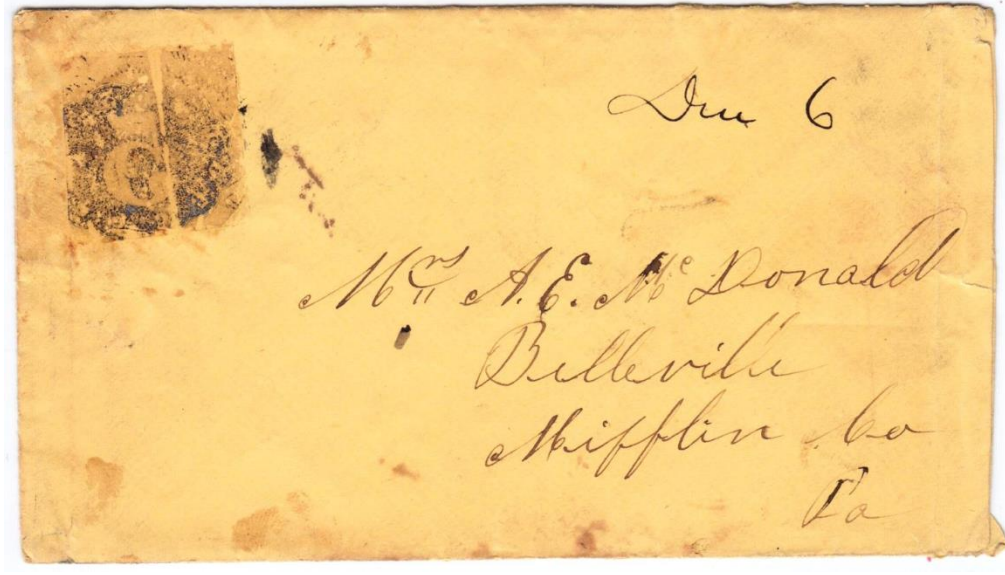 Due 6
Mrs A. E. Mc Donald
Belleville
Mifflin Co
Pa